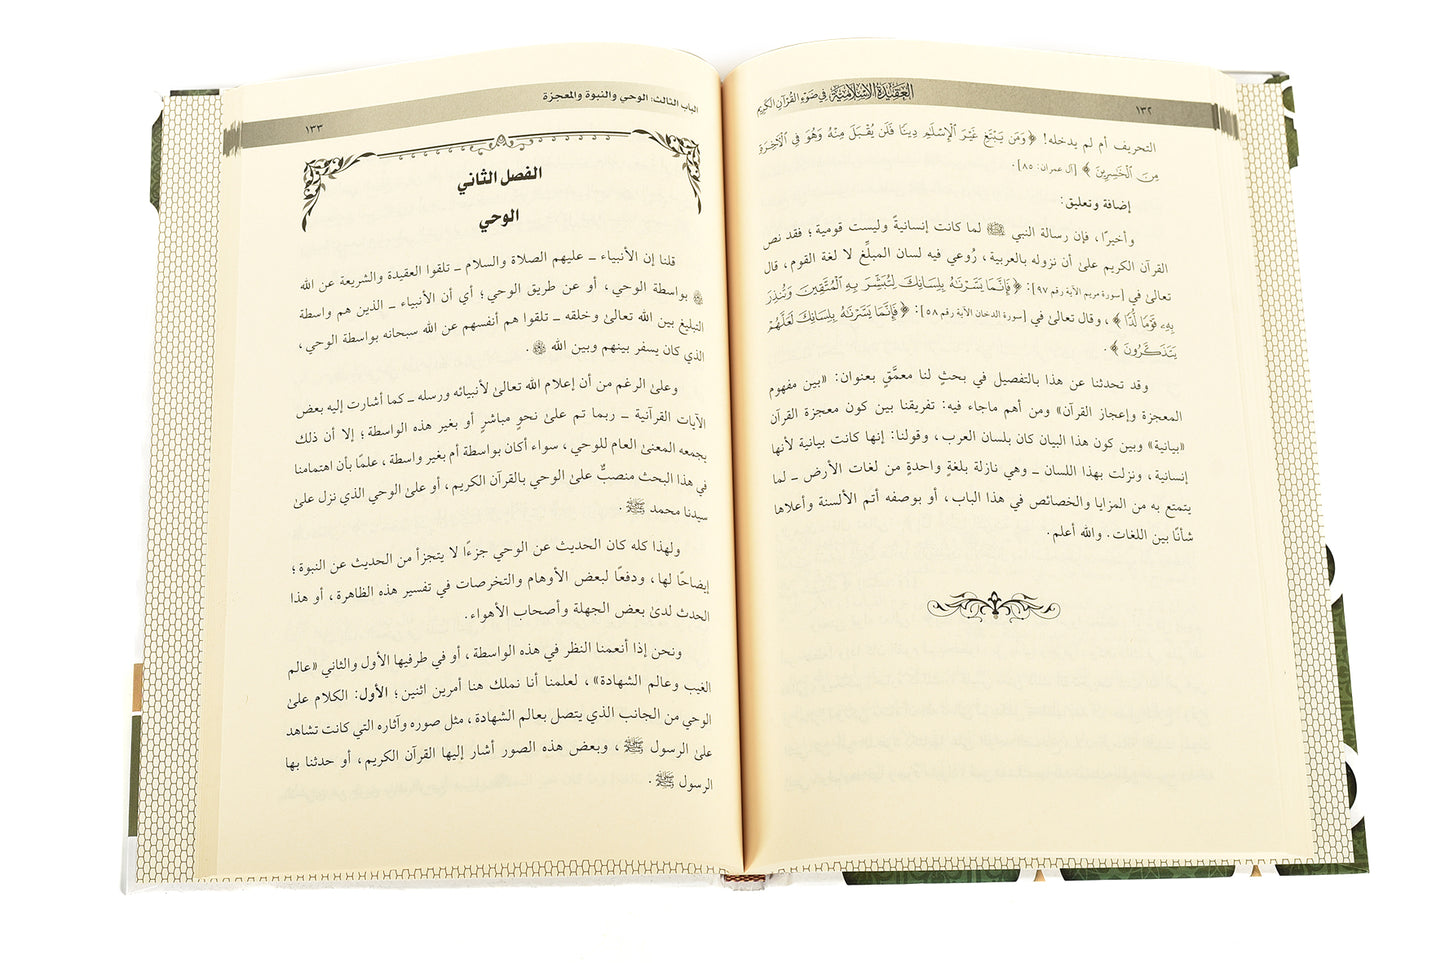 ١٣٢
العقيدة الإسلامية في ضوء القرآن الكريم
التحريف أم لم يدخله! ﴿وَمَن يَبْتَغِ غَيْرَ ٱلْإِسْلَٰمِ دِينًا فَلَن يُقْبَلَ مِنْهُ وَهُوَ فِي ٱلْأٓخِرَةِ
مِنَ ٱلْخَٰسِرِينَ﴾ [آل عمران: ٨٥].
إضافة وتعليق:
وأخيرًا، فإن رسالة النبي ﷺ لما كانت إنسانيةً وليست قومية؛ فقد نص
القرآن الكريم علىٰ أن نزوله بالعربية، رُوعي فيه لسان المبلِّغ لا لغة القوم، قال
تعالىٰ في [سورة مريم الآية رقم ٩٧]: ﴿فَإِنَّمَا يَسَّرْنَٰهُ بِلِسَانِكَ لِتُبَشِّرَ بِهِ ٱلْمُتَّقِينَ وَتُنذِرَ
بِهِۦ قَوْمًا لُّدًّا﴾، وقال تعالىٰ في [سورة الدخان الآية رقم ٥٨]: ﴿فَإِنَّمَا يَسَّرْنَٰهُ بِلِسَانِكَ لَعَلَّهُمْ
يَتَذَكَّرُونَ﴾.
وقد تحدثنا عن هذا بالتفصيل في بحثٍ لنا معمَّقٍ بعنوان: «بين مفهوم
المعجزة وإعجاز القرآن» ومن أهم ماجاء فيه: تفريقنا بين كون معجزة القرآن
«بيانية» وبين كون هذا البيان كان بلسان العرب، وقولنا: إنها كانت بيانية لأنها
إنسانية، ونزلت بهذا اللسان ـ وهي نازلة بلغةٍ واحدةٍ من لغات الأرض ـ لما
يتمتع به من المزايا والخصائص في هذا الباب، أو بوصفه أتم الألسنة وأعلاها
شأنًا بين اللغات. والله أعلم.
الباب الثالث: الوحي والنبوة والمعجزة
١٣٣
الفصل الثاني
الوحي
قلنا إن الأنبياء ـ عليهم الصلاة والسلام ـ تلقوا العقيدة والشريعة عن الله
ﷻ بواسطة الوحي، أو عن طريق الوحي؛ أي أن الأنبياء ـ الذين هم واسطة
التبليغ بين الله تعالىٰ وخلقه ـ تلقوا هم أنفسهم عن الله سبحانه بواسطة الوحي،
الذي كان يسفر بينهم وبين الله ﷻ.
وعلىٰ الرغم من أن إعلام الله تعالىٰ لأنبيائه ورسله ـ كما أشارت إليه بعض
الآيات القرآنية ـ ربما تم علىٰ نحوٍ مباشرٍ أو بغير هذه الواسطة؛ إلا أن ذلك
يجمعه المعنىٰ العام للوحي، سواء أكان بواسطة أم بغير واسطة، علمًا بأن اهتمامنا
في هذا البحث منصبٌّ علىٰ الوحي بالقرآن الكريم، أو علىٰ الوحي الذي نزل علىٰ
سيدنا محمد ﷺ.
ولهذا كله كان الحديث عن الوحي جزءًا لا يتجزأ من الحديث عن النبوة؛
إيضاحًا لها، ودفعًا لبعض الأوهام والتخرصات في تفسير هذه الظاهرة، أو هذا
الحدث لدىٰ بعض الجهلة وأصحاب الأهواء.
ونحن إذا أنعمنا النظر في هذه الواسطة، أو في طرفيها الأول والثاني «عالم
الغيب وعالم الشهادة»، لعلمنا أنا نملك هنا أمرين اثنين؛ الأول: الكلام علىٰ
الوحي من الجانب الذي يتصل بعالم الشهادة، مثل صوره وآثاره التي كانت تشاهد
علىٰ الرسول ﷺ، وبعض هذه الصور أشار إليها القرآن الكريم، أو حدثنا بها
الرسول ﷺ.